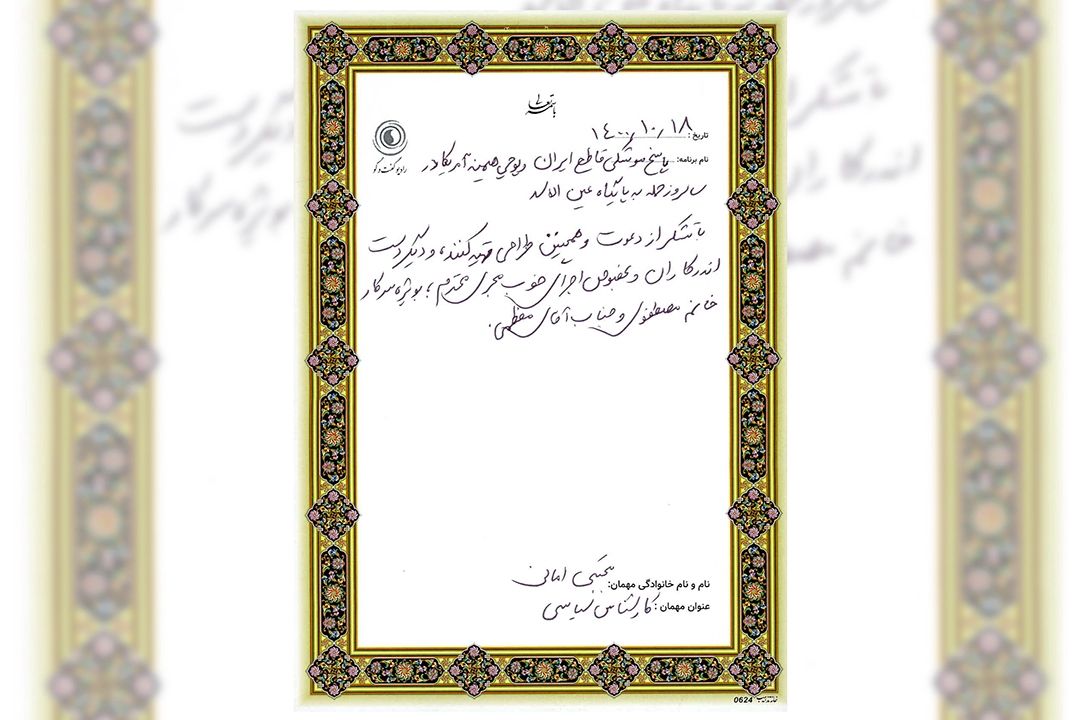 باسمه تعالی
تاریخ: ۱۴۰۰/۱۰/۱۸
رادیو گفت و گو
نام برنامه: پاسخ موشکی قاطع ایران و پوچی هیمنه آمریکا در
سالروز حمله به پایگاه عین الاسد
با تشکر از دعوت و همچنین طراحی تهیه کننده و دیگر دست
اندرکاران و بخصوص اجرای خوب مجری محترم؛ بویژه سرکار
خانم مصطفوی و جناب آقای معظمی.
نام و نام خانوادگی مهمان: مجتبی امانی
عنوان مهمان: کارشناس سیاسی
0624